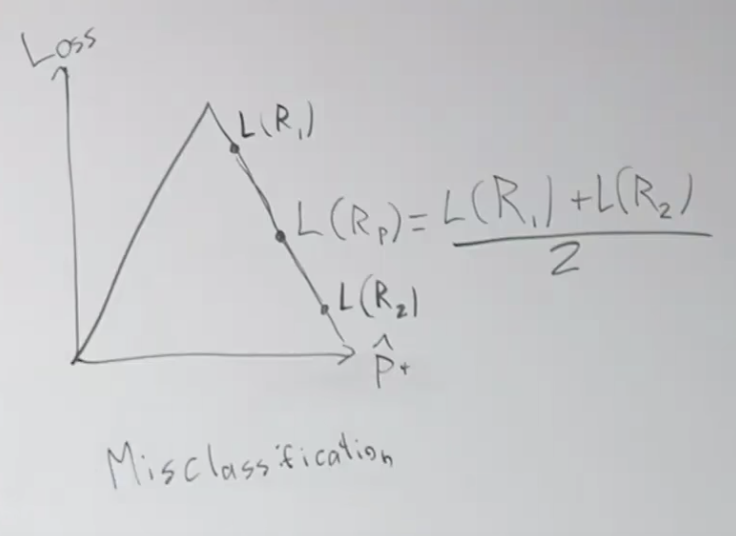 Loss
L(R₁)
L(Rₚ) = L(R₁) + L(R₂) / 2
L(R₂)
p̂₊
Misclassification